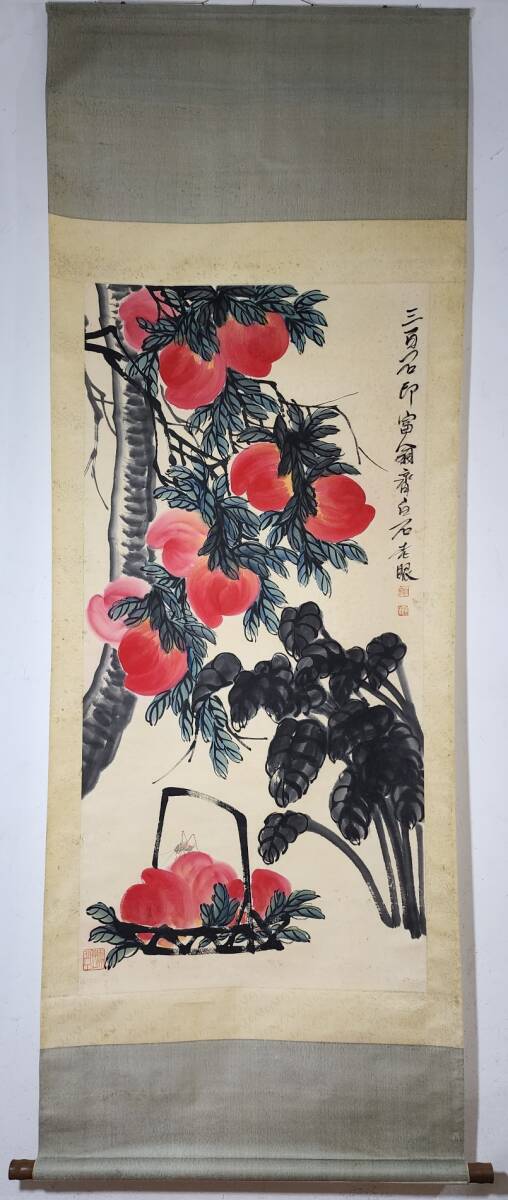 三百石印富翁齊白石老眼